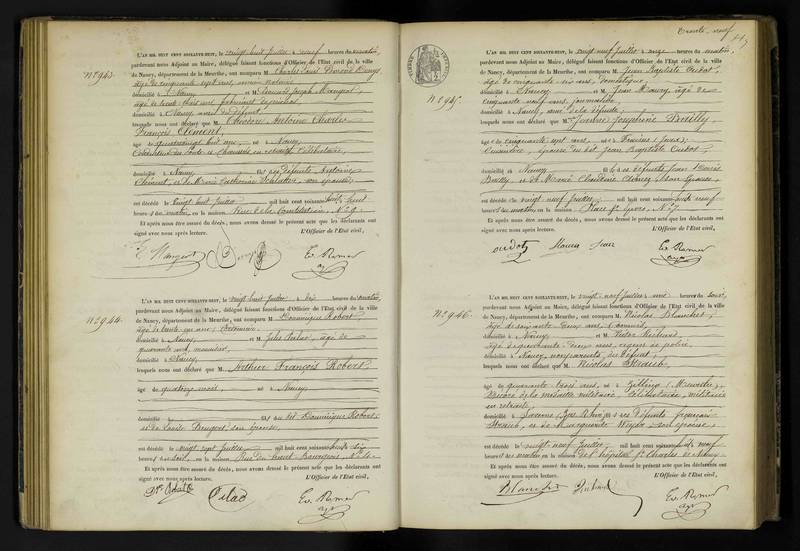 N° 943.
L'AN MIL HUIT CENT SOIXANTE-HUIT, le vingt huit Juillet à neuf heures du matin,
pardevant nous Adjoint au Maire, délégué faisant fonctions d'Officier de l'État civil de la ville
de Nancy, département de la Meurthe, ont comparu M. Charles
âgé de cinquante sept ans,
domicilié à Nancy et M. Joseph Mangeot,
âgé de trente trois ans, fabricant
domicilié à Nancy, amis du défunt,
lesquels nous ont déclaré que M. Antoine Charles
François Clément,
âgé de quatre vingt huit ans, né à Nancy,
Conducteur des Ponts et Chaussées en retraite, célibataire,
domicilié à Nancy fils des défunts Antoine
Clément, et de Marie Catherine son épouse,
est décédé le vingt huit Juillet mil huit cent soixante-huit, à huit
heures du matin, en la maison Rue de la Constitution, N° 9.
Et après nous être assuré du décès, nous avons dressé le présent acte que les déclarants ont
signé avec nous après lecture. L'Officier de l'Etat civil,
E. Mangeot
Ev. Ramer
N° 944.
L'AN MIL HUIT CENT SOIXANTE-HUIT, le vingt huit Juillet à dix heures du matin,
pardevant nous Adjoint au Maire, délégué faisant fonctions d'Officier de l'État civil de la ville
de Nancy, département de la Meurthe, ont comparu M. Dominique Robert,
âgé de trente cinq ans,
domicilié à Nancy, et M. Jules âgé de
quarante ans, menuisier,
domicilié à Nancy,
lesquels nous ont déclaré que M. Arthur François Robert,
âgé de quatorze mois, né à Nancy,
domicilié fils du dit Dominique Robert,
et de Louise son épouse,
est décédé le vingt sept Juillet mil huit cent soixante-huit, à dix
heures du soir, en la maison Rue du haut Bourgeois, N°
Et après nous être assuré du décès, nous avons dressé le présent acte que les déclarants ont
signé avec nous après lecture. L'Officier de l'Etat civil,
Ev. Ramer
N° 945.
L'AN MIL HUIT CENT SOIXANTE-HUIT, le vingt neuf Juillet à onze heures du matin,
pardevant nous Adjoint au Maire, délégué faisant fonctions d'Officier de l'État civil de la ville
de Nancy, département de la Meurthe, ont comparu M. Jean Baptiste Oudot,
âgé de cinquante six ans, domestique,
domicilié à Nancy et M. Jean Moura, âgé de
cinquante neuf ans, journalier,
domicilié à Nancy, amis de la défunte,
lesquels nous ont déclaré que M. Jeanne Josephine
âgée de cinquante sept ans, née à (Jura),
Cuisinière, épouse du dit Jean Baptiste Oudot,
domiciliée à Nancy fille des défunts Jean
et de Marie Claudine son épouse,
est décédée le vingt neuf Juillet mil huit cent soixante-huit, à neuf
heures du matin, en la maison Place St. Epvre, N° 7.
Et après nous être assuré du décès, nous avons dressé le présent acte que les déclarants ont
signé avec nous après lecture. L'Officier de l'Etat civil,
oudot Moura Jean
Ev. Ramer
N° 946.
L'AN MIL HUIT CENT SOIXANTE-HUIT, le vingt neuf Juillet à une heures du soir,
pardevant nous Adjoint au Maire, délégué faisant fonctions d'Officier de l'État civil de la ville
de Nancy, département de la Meurthe, ont comparu M. Nicolas Blanchet,
âgé de soixante deux ans,
domicilié à Nancy et M. Victor
âgé de quarante deux ans, agent de police,
domicilié à Nancy, non parents du défunt,
lesquels nous ont déclaré que M. Nicolas Straub,
âgé de quarante trois ans, né à (Moselle),
Décoré de la médaille militaire, célibataire, militaire
en retraite,
domicilié à Saverne (Bas Rhin) fils des défunts François
Straub, et de Marguerite son épouse,
est décédé le vingt neuf Juillet mil huit cent soixante-huit, à neuf
heures du matin en la maison de l'hôpital St. Charles de Nancy.
Et après nous être assuré du décès, nous avons dressé le présent acte que les déclarants ont
signé avec nous après lecture. L'Officier de l'Etat civil,
Blanchet
Ev. Ramer